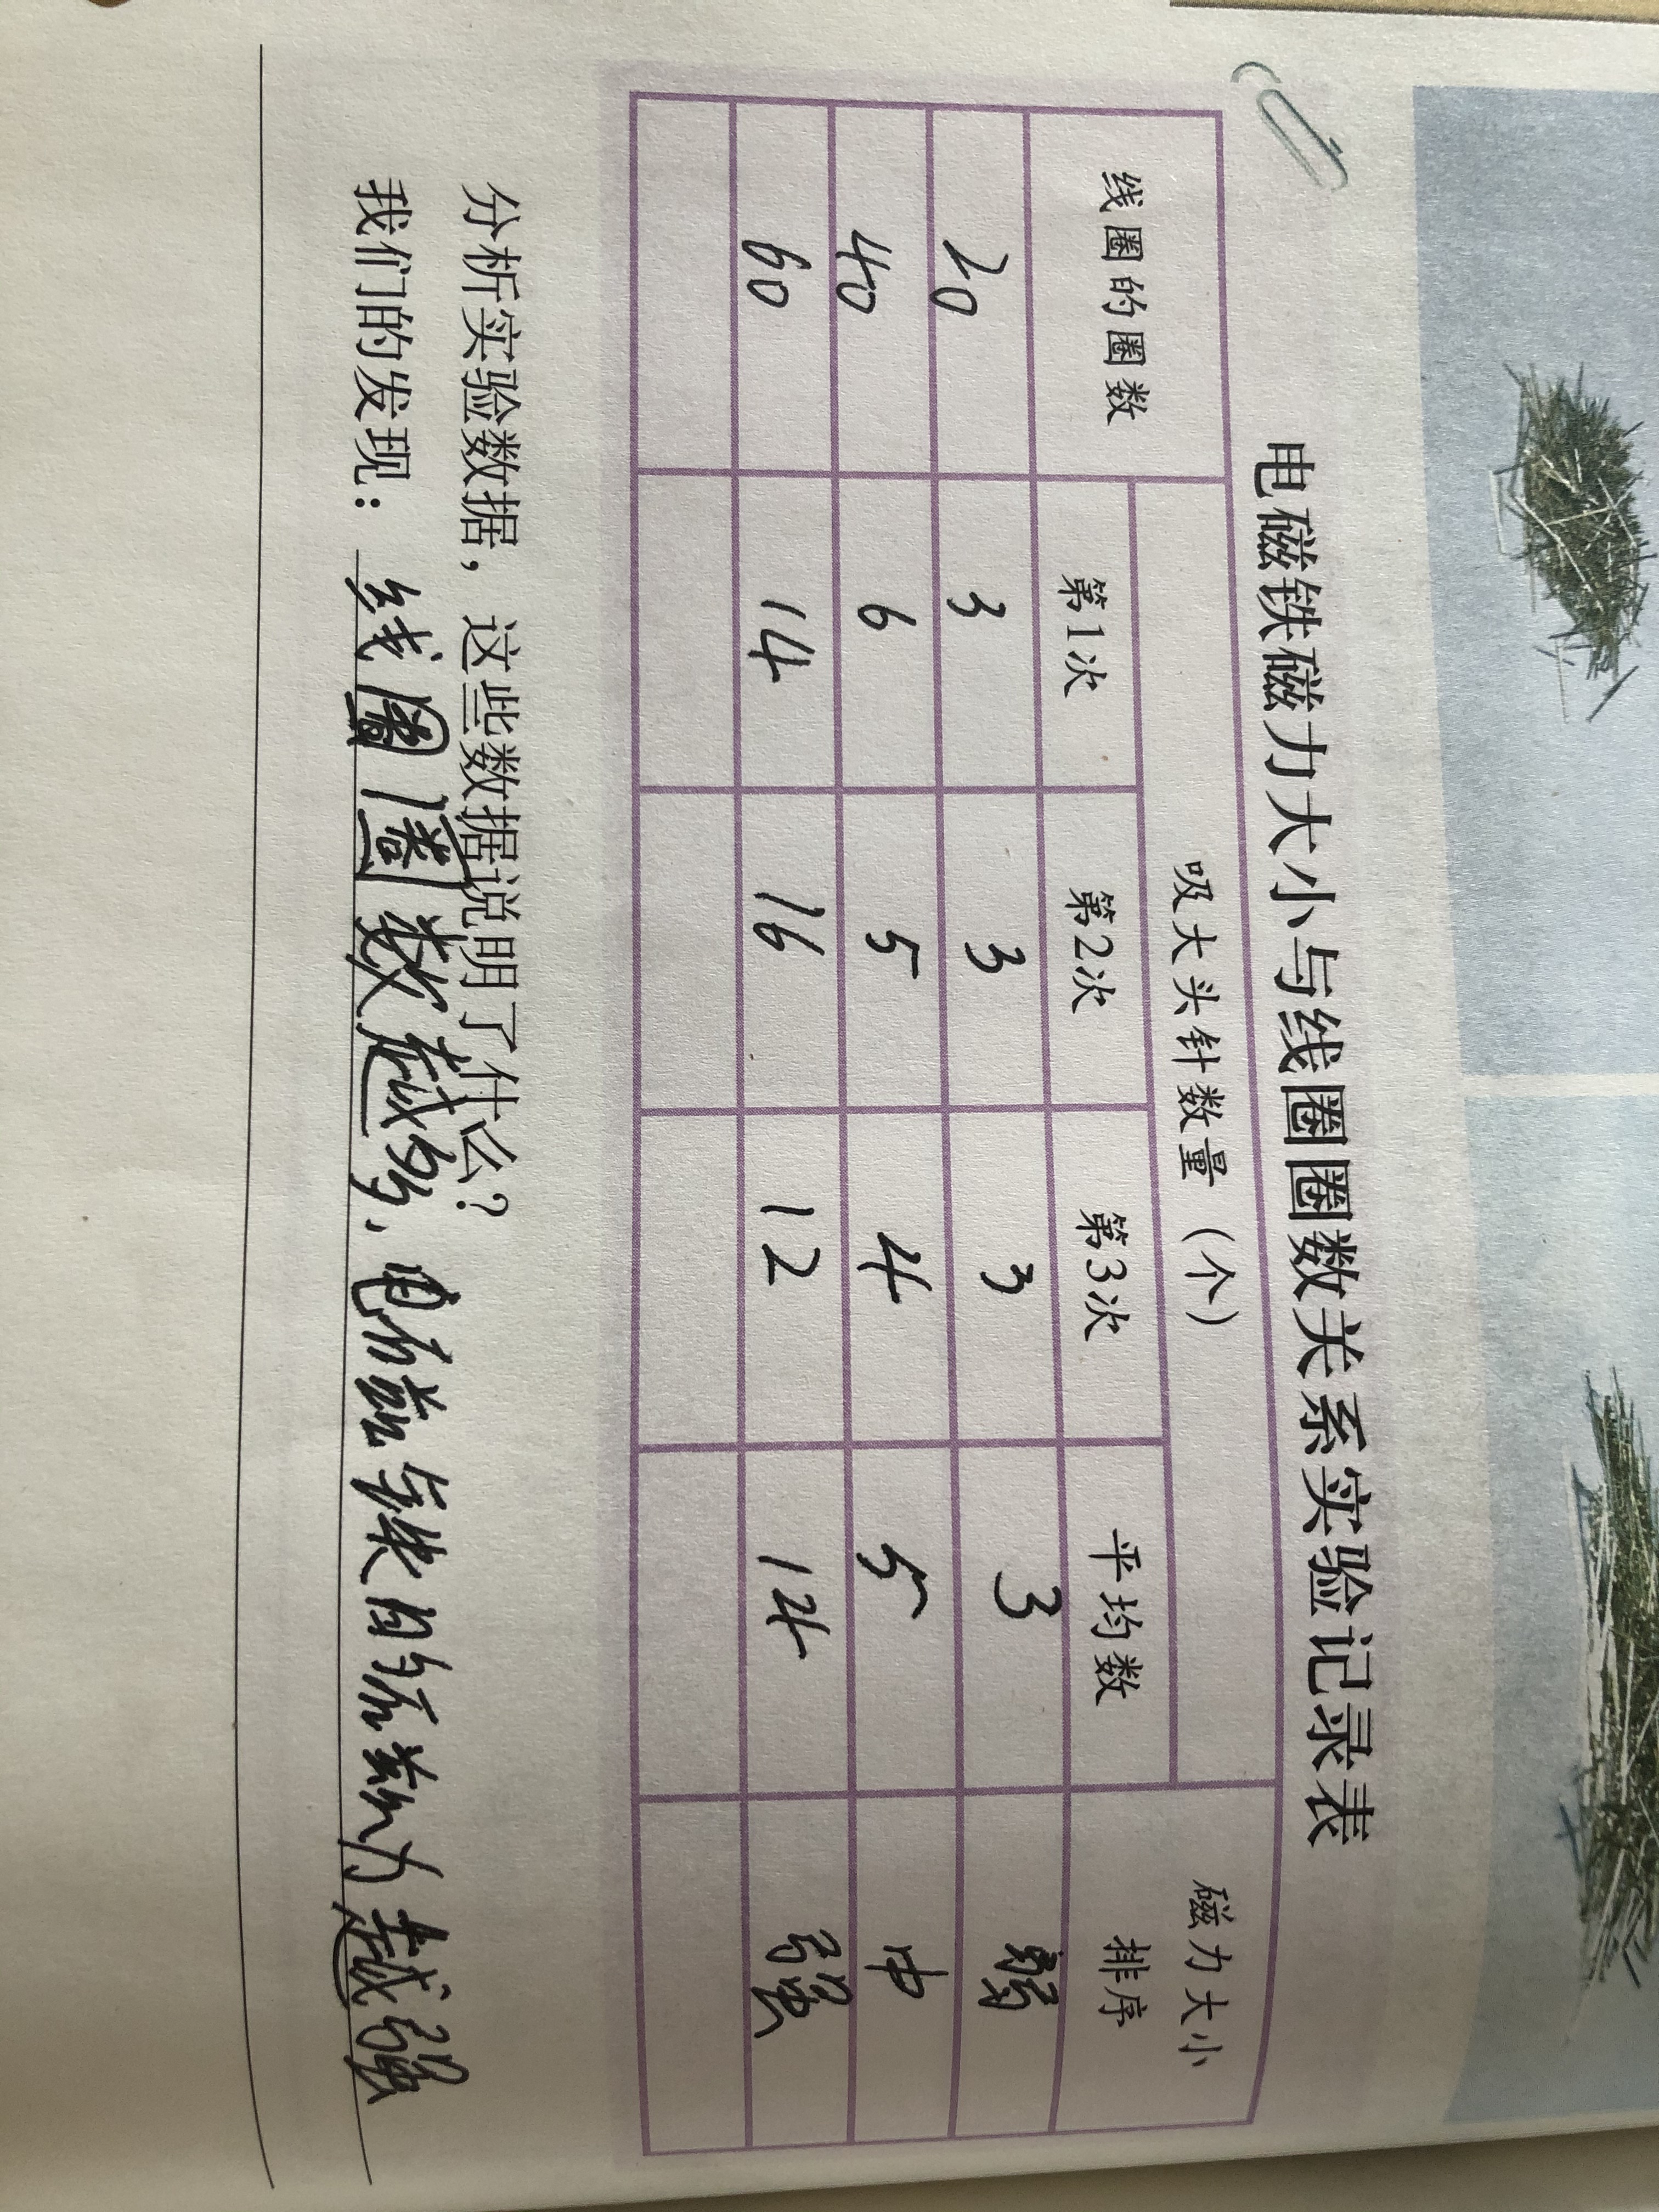 电磁铁磁力大小与线圈圈数关系实验记录表
线圈的圈数 吸大头针数量（个） 磁力大小排序
第1次 第2次 第3次 平均数
20 3 3 3 3 弱
40 6 5 4 5 中
60 14 16 12 14 强
分析实验数据，这些数据说明了什么？
我们的发现：线圈圈数越多，电磁铁的磁力越强